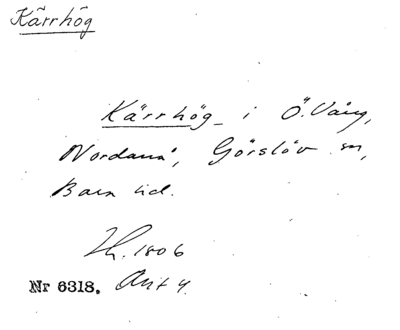 Kärrhög
Kärrhög i Ö. Vång,
Nordanå, Görslöv sn,
Bara hd.
1806
Nr 6318. Akt 4.